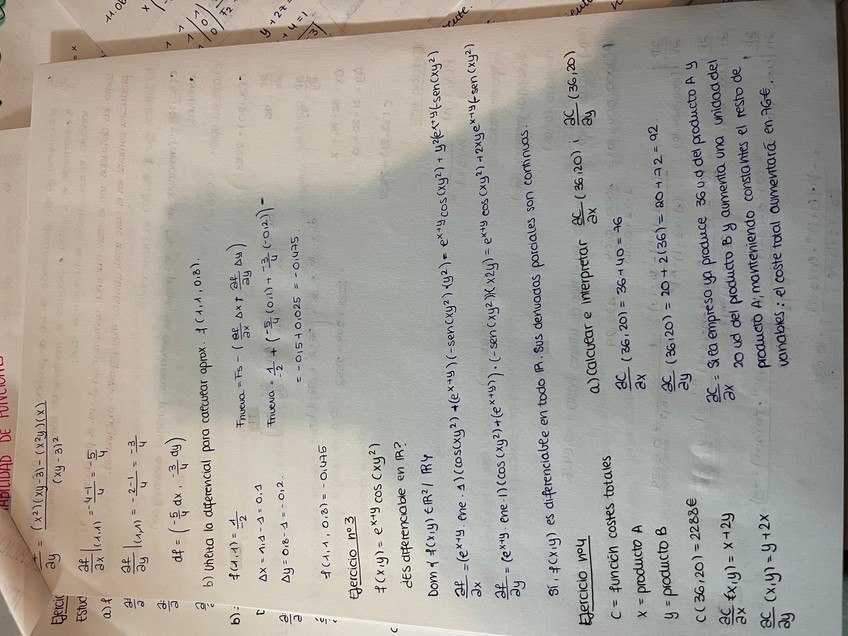 ABILIDAD DE FUNCIONES
Ejerci
Estud
a) f
∂y = (x²)(xy-3) - (x²y)(x)
(xy-3)²
∂f/∂x |(1,1) = -4-1/4 = -5/4
∂f/∂y |(1,1) = -2-1/4 = -3/4
df = (-5/4 dx, -3/4 dy)
b) Utiliza la diferencial para calcular aprox. f(1,1, 0,8).
b): f(1,1) = 1/-2
Δx = 1,1-1 = 0,1
Δy = 0,8-1 = -0,2.
Fnueva = Fs - (∂f/∂x Δx + ∂f/∂y Δy)
Fnueva = 1/-2 + (-5/4 (0,1) + -3/4 (-0,2)) =
= -0,5 + 0,025 = -0,475.
f(1,1, 0,8) = -0,475
Ejercicio nº3
f(x,y) = e^x+y cos(xy²)
¿ES diferenciable en R?
Dom f f(x,y) ∈ R² / R y
∂f/∂x = (e^x+y · lne · 1)(cos(xy²) + (e^x+y)(-sen(xy²) · (y²) = e^x+y cos(xy²) + y²(e^x+y)(-sen(xy²)
∂f/∂y = (e^x+y · lne · 1)(cos(xy²) + (e^x+y)) · (-sen(xy²)(x2y) = e^x+y cos(xy²) + 2xy e^x+y(-sen(xy²)
Sí, f(x,y) es diferenciable en todo R. Sus derivadas parciales son continuas.
Ejercicio nº4
C = función costes totales
x = producto A
y = producto B
C(36,20) = 2288€
∂C/∂x (x,y) = x+2y
∂C/∂y (x,y) = y+2x
a) Calcular e interpretar ∂C/∂x (36,20) i ∂C/∂y (36,20)
∂C/∂x (36,20) = 36+40 = 76
∂C/∂y (36,20) = 20+2(36) = 20+72 = 92.
∂C/∂x = Si la empresa ya produce 36 ud del producto A y
20 ud del producto B y aumenta una unidad del
producto A, manteniendo constantes el resto de
variables; el coste total aumentará en 76€.